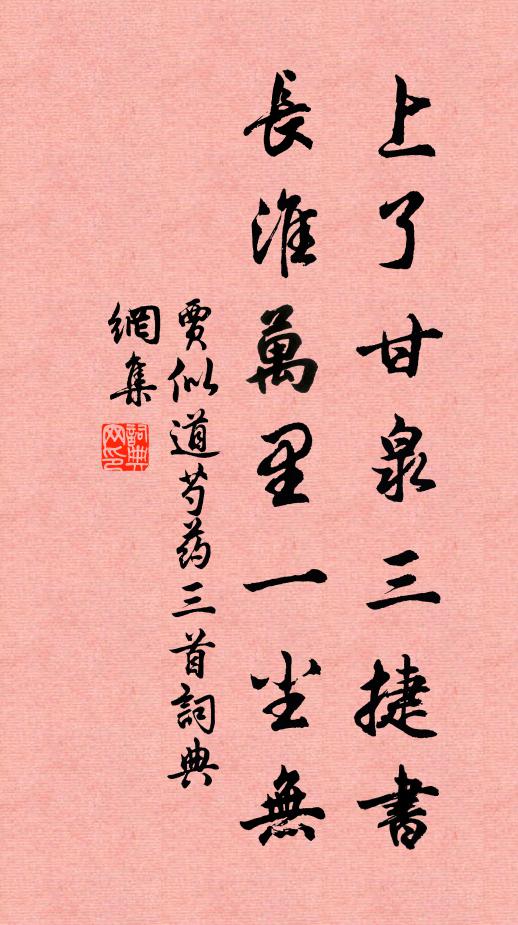 上了甘泉三捷書
長淮萬里一尘無
賈似道芍药三首詞典
網集
詞典网印